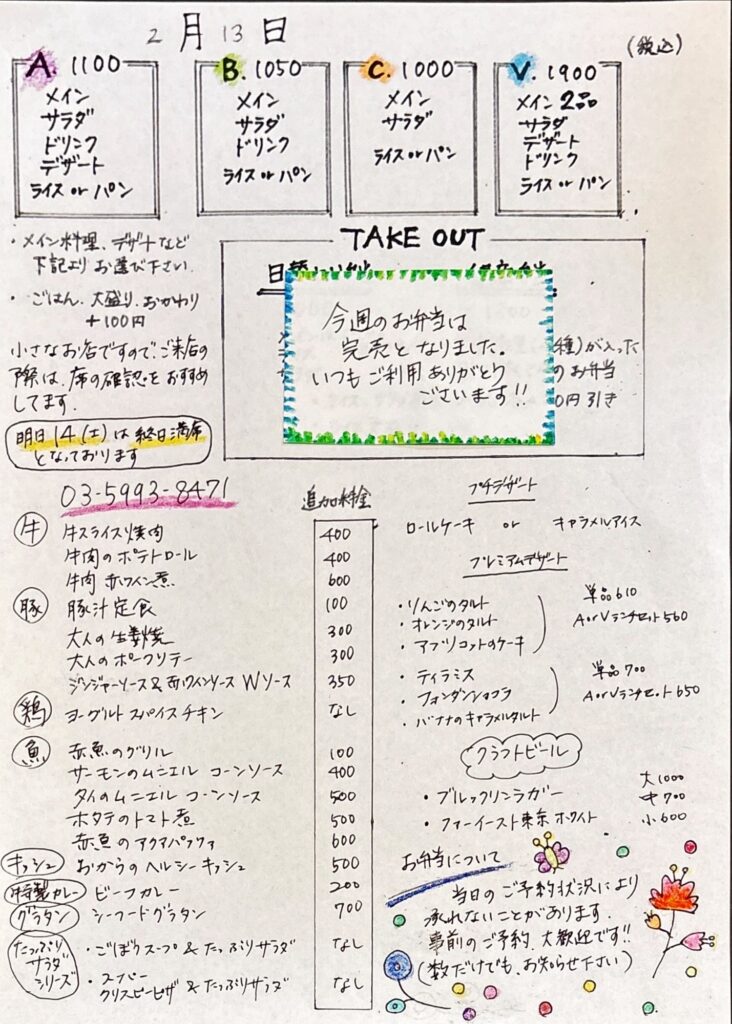 2月13日
(税込)
A. 1100
メイン
サラダ
ドリンク
デザート
ライス or パン
B. 1050
メイン
サラダ
ドリンク
ライス or パン
C. 1000
メイン
サラダ
ライス or パン
V. 1900
メイン 2品
サラダ
デザート
ドリンク
ライス or パン
・メイン料理、デザートなど
下記より お選び下さい.
・ごはん. 大盛り. おかわり
+100円
小さなお店ですので、ご来店の
際は、席の確認を おすすめ
してます.
明日 14(土)は 終日満席
となっております
03-5993-8471
TAKE OUT
今週のお弁当は
完売となりました.
いつも ご利用 ありがとう
ございます!!
種)が入った
のお弁当
0円引き
追加料金
牛
牛スライス焼肉 400
牛肉のポテトロール 400
牛肉 赤ワイン煮 600
豚
豚汁定食 100
大人の生姜焼 300
大人のポークソテー 300
ジンジャーソース&赤ワインソース Wソース 350
鶏
ヨーグルトスパイスチキン なし
魚
赤魚のグリル 100
サーモンのムニエル コーンソース 400
タイのムニエル コーンソース 500
ホタテのトマト煮 500
赤魚のアクアパッツァ 600
キッシュ おからのヘルシーキッシュ 500
特製カレー ビーフカレー 200
グラタン シーフードグラタン 700
たっぷり
サラダ
シリーズ
・ごぼうスープ & たっぷりサラダ なし
・スーパー
クリスピーピザ & たっぷりサラダ なし
プチデザート
ロールケーキ or キャラメルアイス
プレミアムデザート
・りんごのタルト
・オレンジのタルト
・アプリコットのケーキ
単品610
AorVランチセット560
・ティラミス
・フォンダンショコラ
・バナナのキャラメルタルト
単品700
AorVランチセット650
クラフトビール
・ブルックリンラガー
・ファーイースト東京ホワイト
大1000
中700
小600
お弁当について
当日のご予約状況により
承れないことがあります.
事前のご予約、大歓迎です!!
(数だけでも、お知らせ下さい)